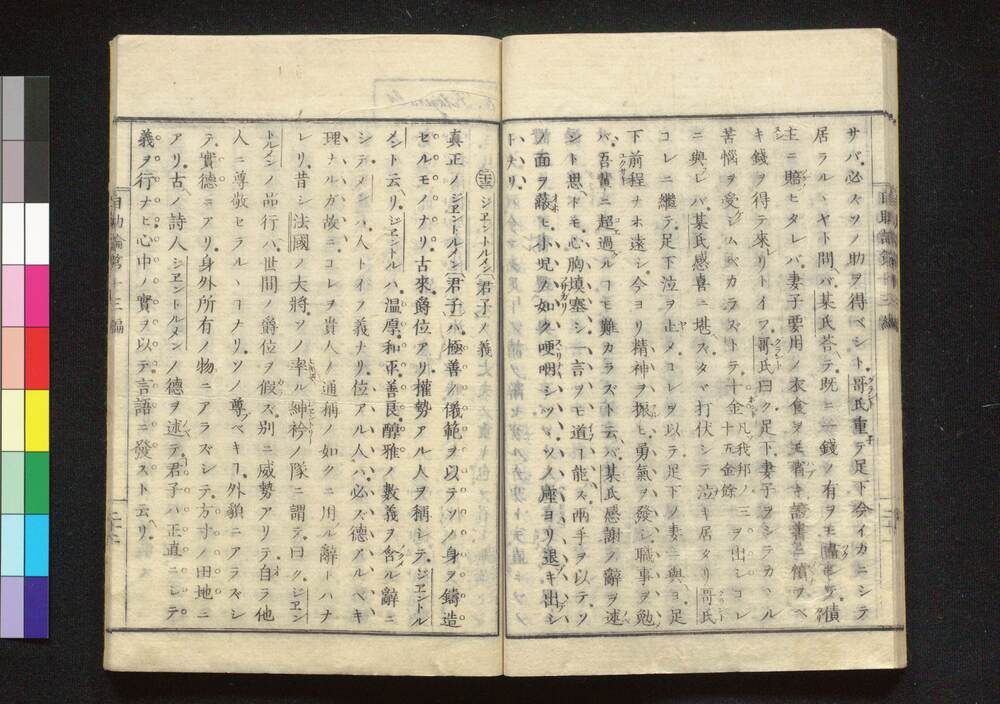 サバ、必ズソノ助ヲ得ベシト、哥氏重テ足下今イカニシテ
居ラルヽヤト問バ、某氏荅テ、既ニ一錢ソノ有ヲモ盡シテ債
主ニ賠ヒタレバ、妻子要用ノ衣食ヲモ省キ、
キ錢ヲ得テ來レリトイフ、哥氏曰ク足下妻子ヲシテ、カヽル
苦惱ヲ受シムベカラズトテ、十金凡我邦ノ三十五金餘ヲ出シ、コレ
ニ與レバ、某氏感喜ニ堪ズ、タヾ打伏シテ泣キ居タリ、哥氏
コレニ繼テ、足下泣ヲ止メ、コレヲ以テ足下ノ妻ニ與ヨ、足
下前程ナホ遠シ、今ヨリ精神ヲ振ヒ、勇氣ヲ發シ、職事ヲ勉
バ、吾輩ニ超過ルコモ難カラズト云バ、某氏感謝ノ辭ヲ述
ント思ヘドモ、心胸塡塞シ、一言ヲモ道コ能ズ、兩手ヲ以テソ
ノ面ヲ蔽モ、小兒ノ如ク哽咽シツヽ、ソノ座ヨリ退キ出シ
トナリ
㊂ ジエントルメン(君子)ノ義
真正ノジエントルメン(君子)バ、極善ノ儀範ヲ以テソノ身ヲ鑄造
セルモノナリ、古來爵位アリ權勢アル人ヲ稱シテ、ジエントル
メント云リ、ジエントルハ、溫厚、和平、善良、醇雅ノ數義ヲ含ル辭ニ
シテ、メンハ、人トイフ義ナリ、位アル人ハ、必ズ德アルベキ
理ナルガ故ニ、コレヲ貴人ノ通稱ノ如クニ用ル辭トハナ
レリ、昔シ法國ノ大將、ソノ率ル紳衿ノ隊ニ謂テ曰ク、ジエン
トルメンノ品行ハ、世間ノ爵位ヲ假ズ、別ニ威勢アリテ、自ラ他
人ニ尊敬セラルヽコナリ、ソノ尊ブベキコ、外貌ニアラズシ
テ、實德ニアリ、身外所有ノ物ニアラズシテ、方寸ノ田地ニ
アリ、古ノ詩人、ジエントルメンノ德ヲ述テ、君子ハ正直ニシテ
義ヲ行ナヒ、心中ノ實ヲ以テ言語ニ發スト云リ、
自助論第十三編